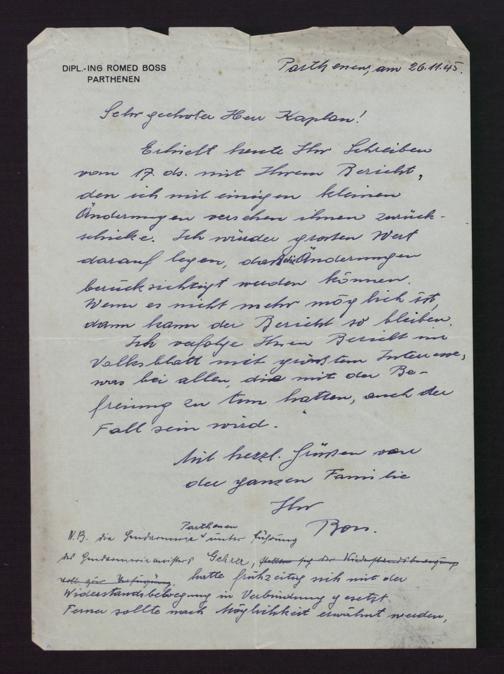 DIPL.-ING ROMED BOSS
PARTHENEN
Parthenen, am 26.11.45.
Sehr geehrter Herr Kaplan!
Erhielt heute Ihr Schreiben
vom 17. ds. mit Ihrem Bericht,
den ich mit einigen kleinen
Änderungen versehen ihnen zurück-
schicke. Ich würde großen Wert
darauf legen, daß die Änderungen
berücksichtigt werden können.
Wenn es nicht mehr möglich ist,
dann kann der Bericht so bleiben.
Ich verfolge Ihren Bericht im
Volksblatt mit größtem Interesse,
was bei allen, die mit der Be-
freiung zu tun hatten, auch der
Fall sein wird.
Mit herzl. Grüßen von
der ganzen Familie
Ihr
Boss.
Parthenen
N.B. die Gendarmerie unter Führung
des Gendarmeriemeisters Gehrer, hatten sich der Widerstandsbewegung
voll zur Verfügung. hatte frühzeitig sich mit der
Widerstandsbewegung in Verbindung gesetzt.
Ferner sollte nach Möglichkeit erwähnt werden,